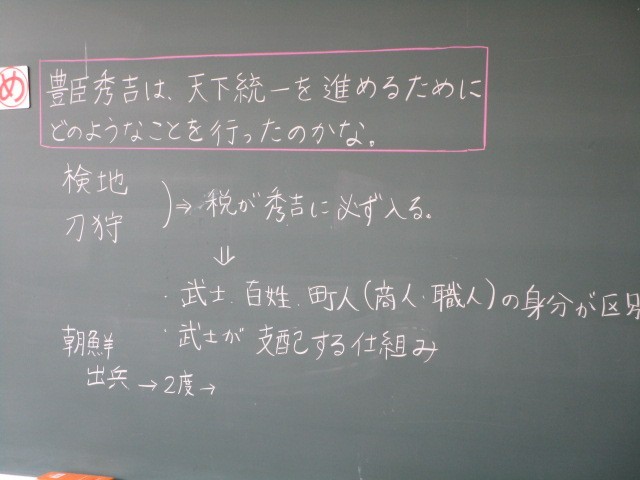 め
豊臣秀吉は、天下統一を進めるために
どのようなことを行ったのかな。
検地
刀狩
⇒ 税が秀吉に必ず入る。
⇓
・武士、百姓、町人(商人・職人)の身分が区別
・武士が支配する仕組み
朝鮮
出兵 → 2度 →